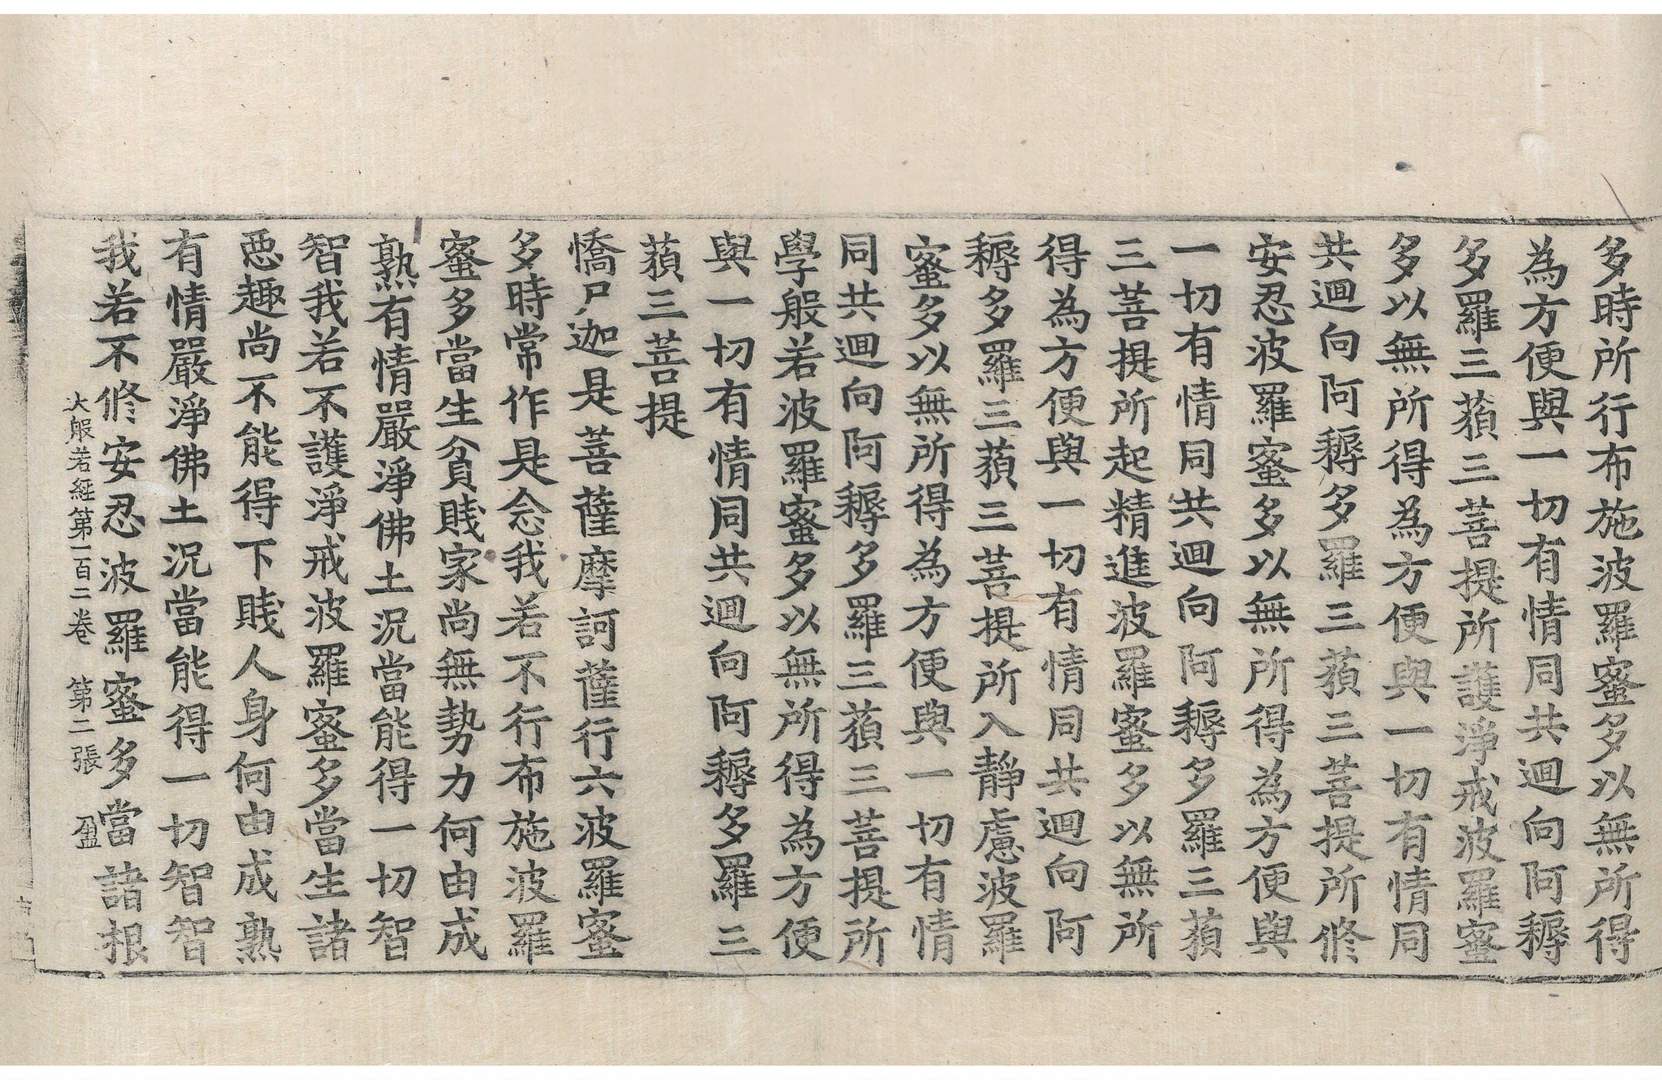 多時所行布施波羅蜜多以無所得
為方便與一切有情同共迴向阿耨
多羅三藐三菩提所護淨戒波羅蜜
多以無所得為方便與一切有情同
共迴向阿耨多羅三藐三菩提所修
安忍波羅蜜多以無所得為方便與
一切有情同共迴向阿耨多羅三藐
三菩提所起精進波羅蜜多以無所
得為方便與一切有情同共迴向阿
耨多羅三藐三菩提所入靜慮波羅
蜜多以無所得為方便與一切有情
同共迴向阿耨多羅三藐三菩提所
學般若波羅蜜多以無所得為方便
與一切有情同共迴向阿耨多羅三
藐三菩提
憍尸迦是菩薩摩訶薩行六波羅蜜
多時常作是念我若不行布施波羅
蜜多當生貧賤家尚無勢力何由成
熟有情嚴淨佛土況當能得一切智
智我若不護淨戒波羅蜜多當生諸
惡趣尚不能得下賤人身何由成熟
有情嚴淨佛土況當能得一切智智
我若不修安忍波羅蜜多當諸根
大般若經第一百二卷 第二張 盈